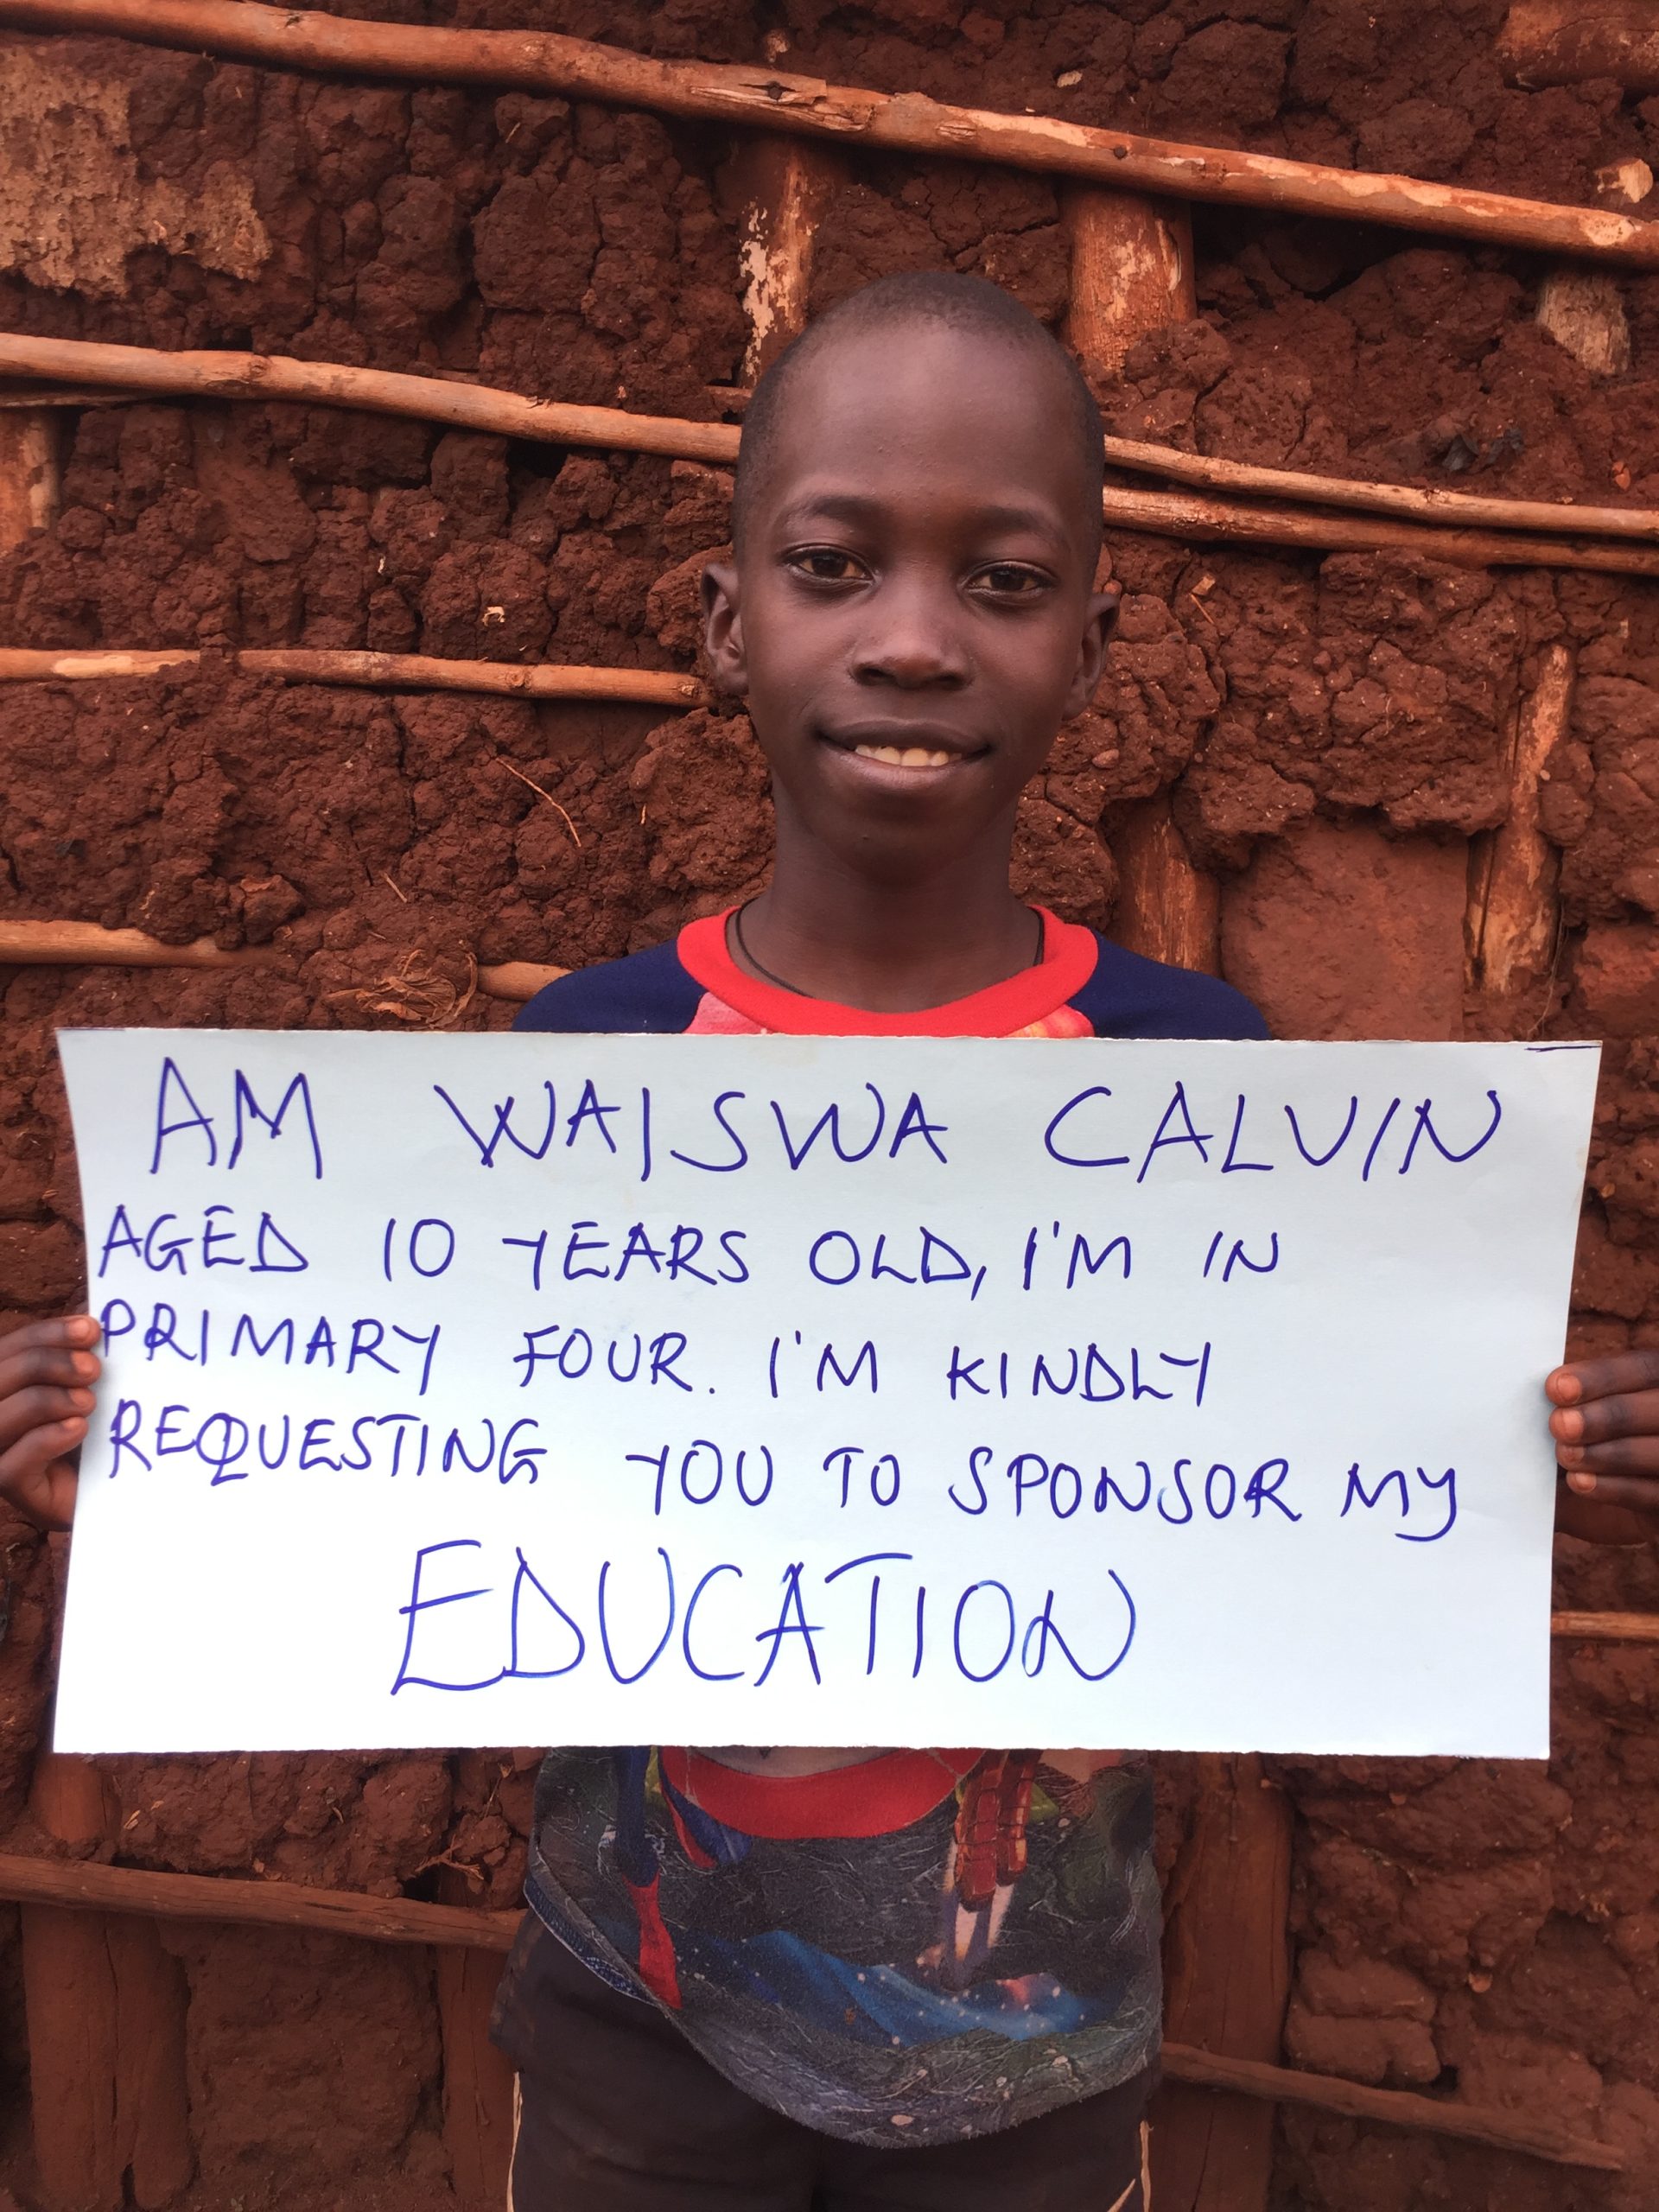 AM WAISWA CALVIN
AGED 10 YEARS OLD, I'M IN
PRIMARY FOUR. I'M KINDLY
REQUESTING YOU TO SPONSOR MY
EDUCATION